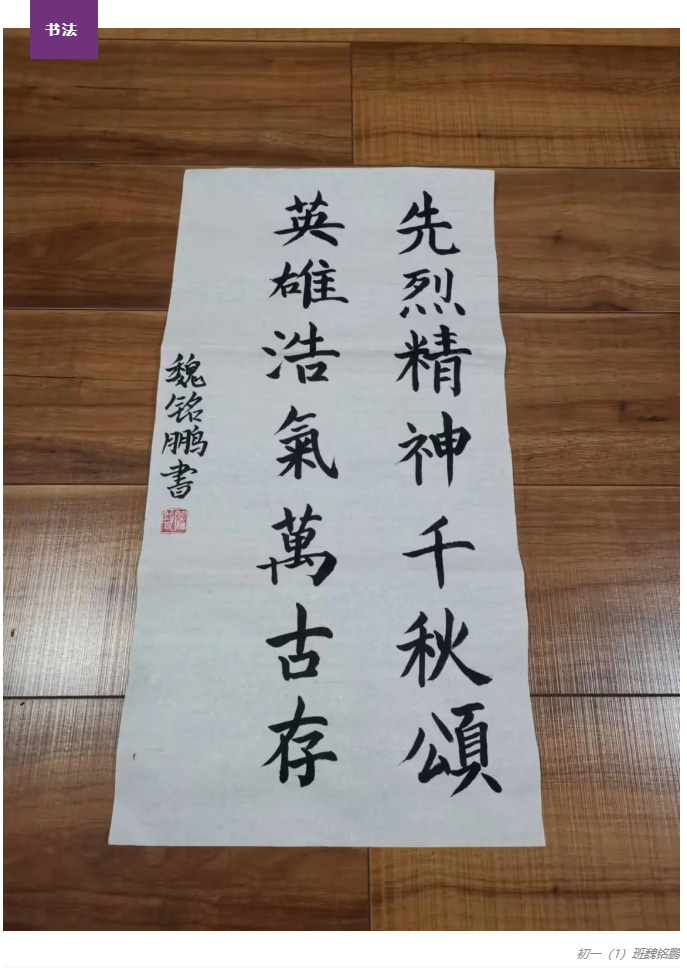 书法
先烈精神千秋頌
英雄浩氣萬古存
魏铭鹏書
初一（1）班魏铭鹏